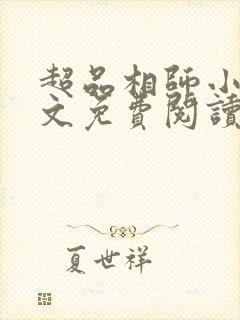 超品相師小
文免費閱讀
夏世祥